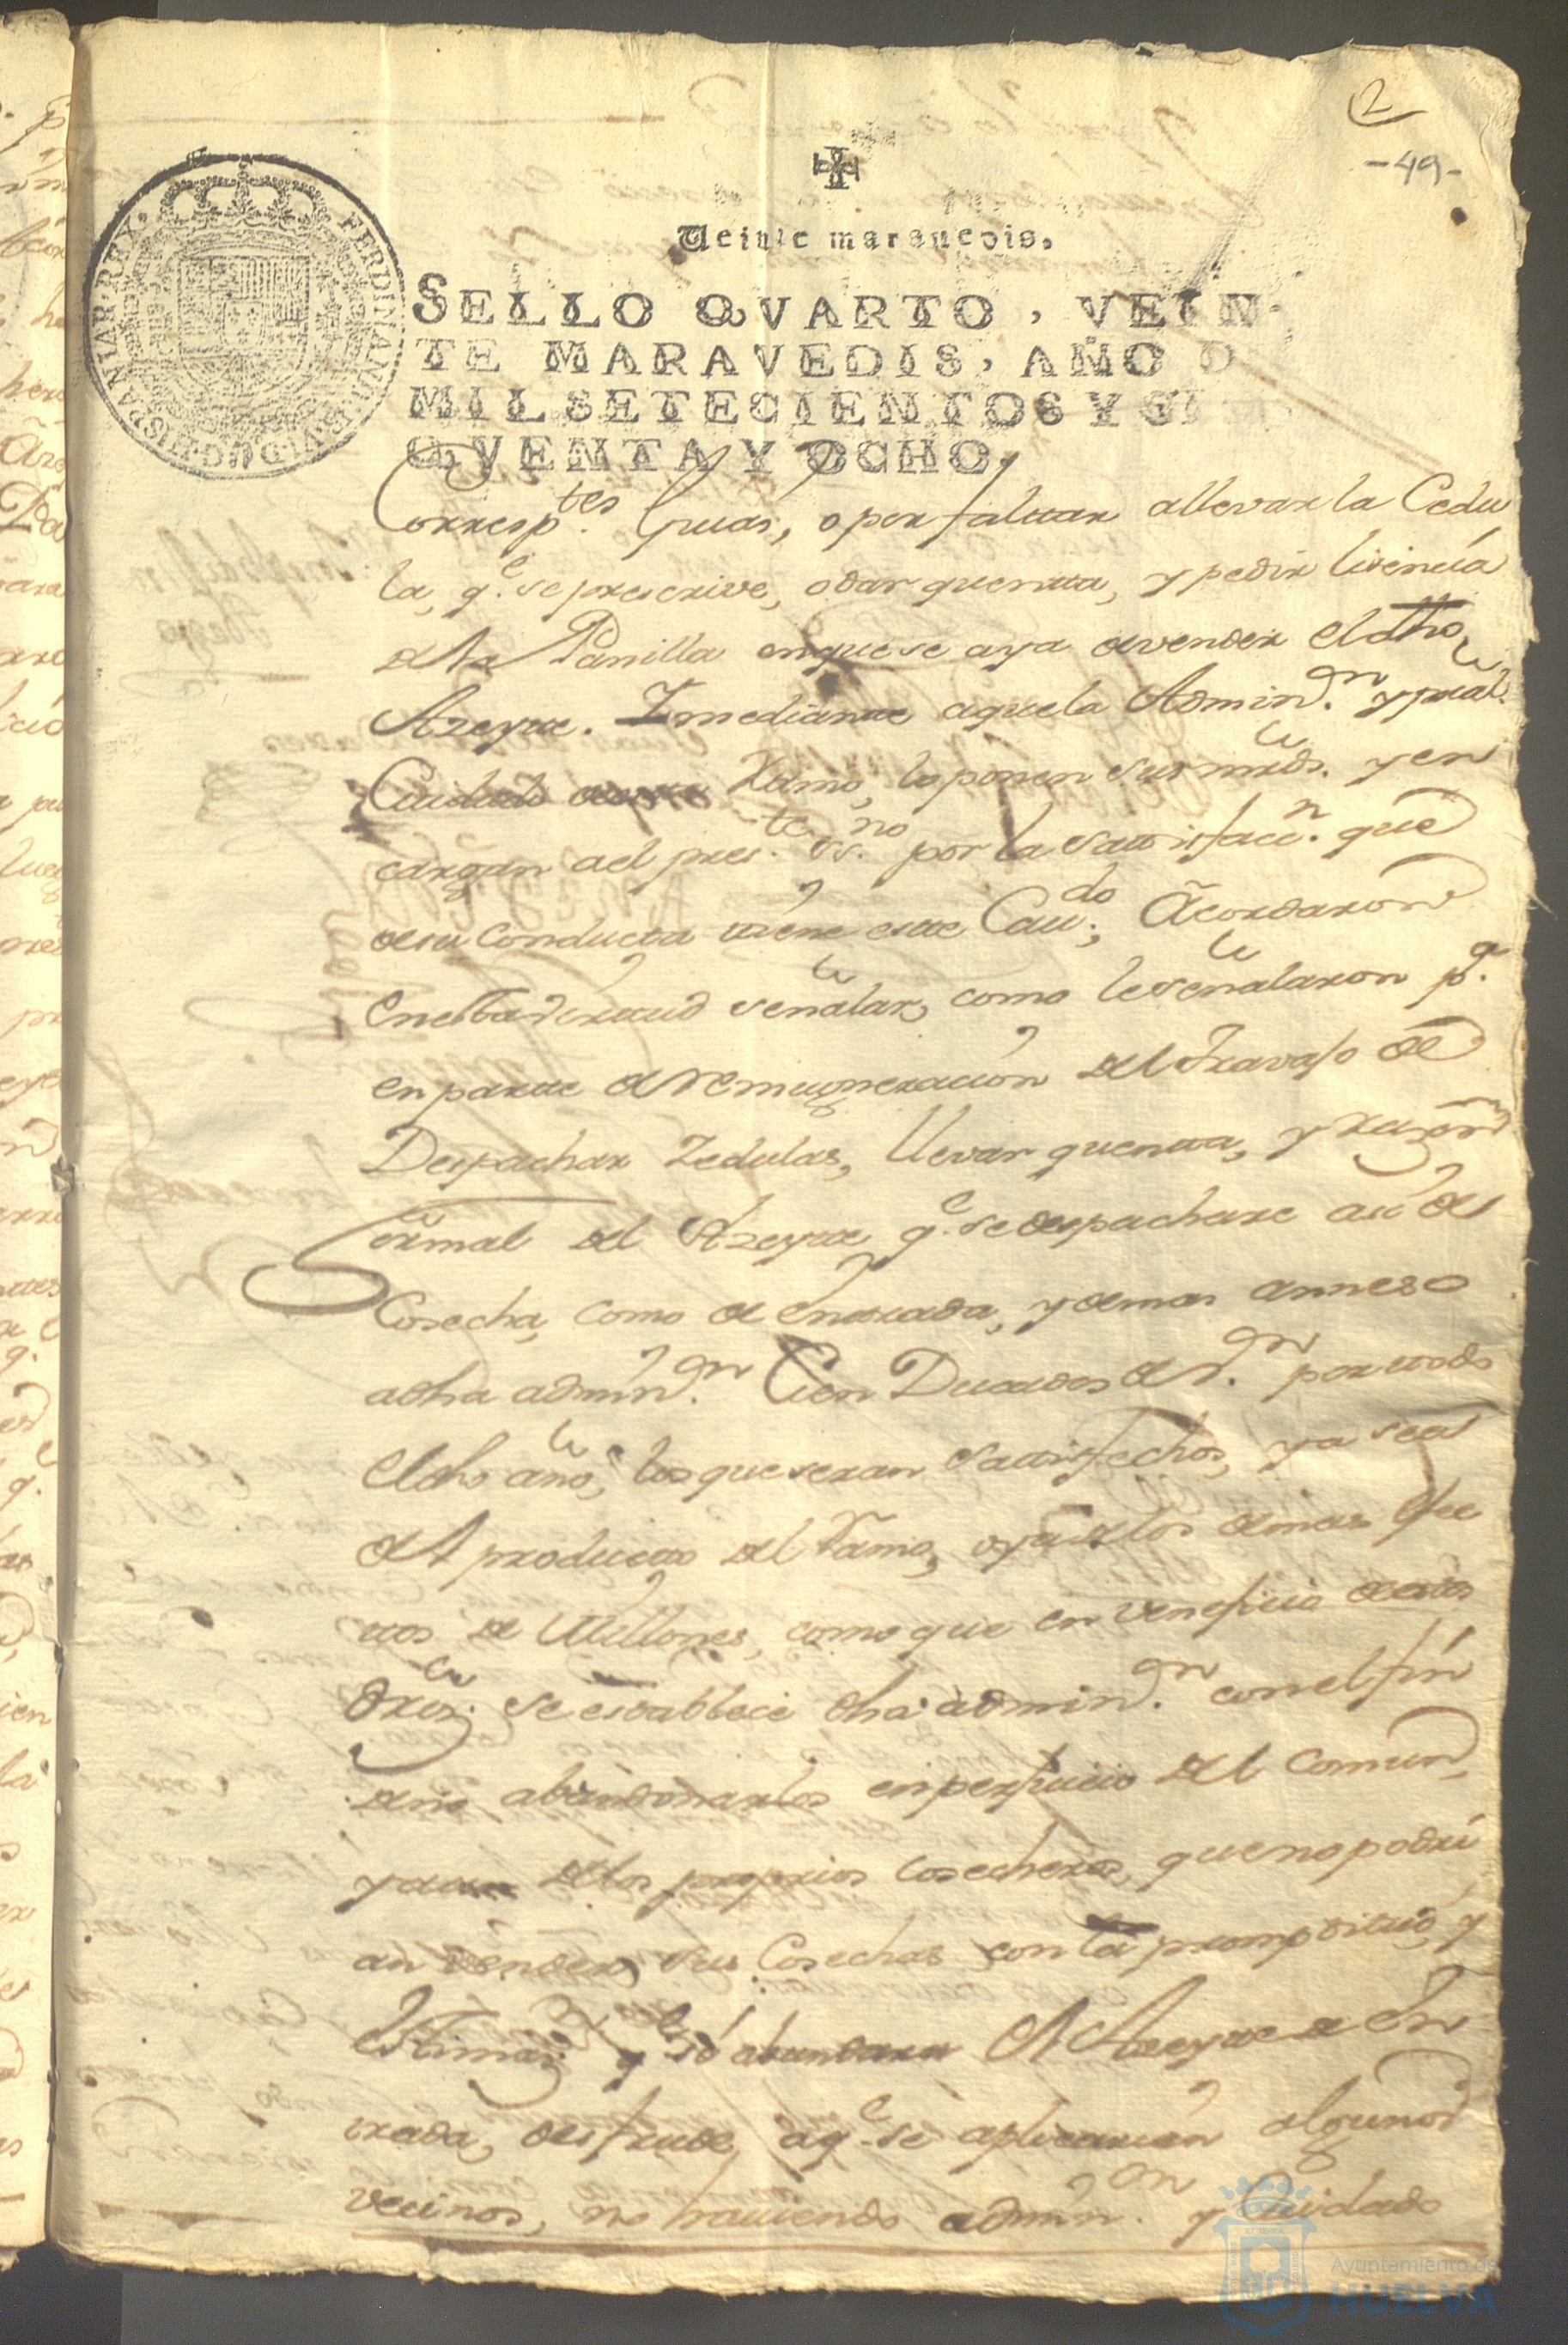 2
-49-
Veinte maravedis.
SELLO QVARTO, VEIN
TE MARAVEDIS, AÑO D
MIL SETECIENTOS Y CI
QVENTA Y OCHO.
FERDINANDI. D. G. HISPANIAR. REX.
Corresp.tes Guias, o por faltar allevar la Cedu
la, q.e se prescrive, o dar quenta, y pedir lisencia
de la Panilla en que se aya de vender el dho
Azeyte. Y mediante a que la Admin.on y pral.
Cuidado Ramo, lo ponen sus mrds. y en
cargan ael pres.te ss.no por la satisfacc.n que
de su conducta tiene este Cav.do; Acordaron
en esta virtud señalar, como le señalaron p.a
en parte de remugneracion del travajo de
Despachar Zedulas, llevar quenta, y razon
formal del Azeyte q.e se despachare asi de
Cosecha, como de entrada, y demas annexo
a dha admin.on Cien Ducados de v.on por todo
el dho año, los que seran satisfechos, ya sea
de el producto del Ramo, o ya de los demas efec
tos de Millones, como que en veneficio de estos
dros. se establece dha admin.on con el fin
de no abandonarlos en perjuicio del comun,
y aun de los proprios cosecheros, que no podri
an vender sus Cosechas con la promptitud, y
estimaz.on q.e si abundara el Azeyte de En
trada, desfrude, a q.e se aplicarian algunos
vecinos, no haviendo admin.on y Cuidado
Ayuntamiento de
HUELVA